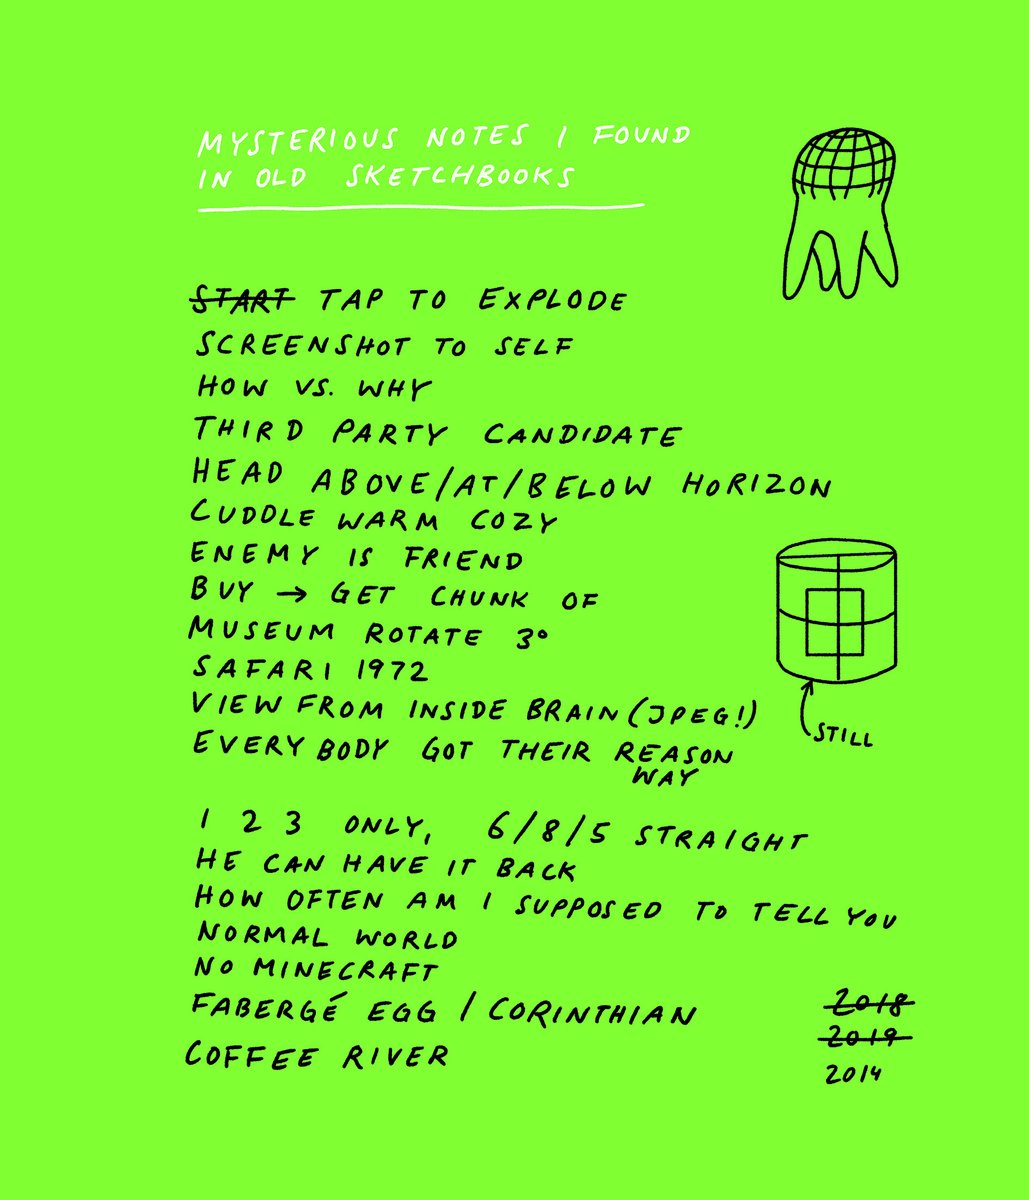 MYSTERIOUS NOTES I FOUND
IN OLD SKETCHBOOKS
START TAP TO EXPLODE
SCREENSHOT TO SELF
HOW VS. WHY
THIRD PARTY CANDIDATE
HEAD ABOVE/AT/BELOW HORIZON
CUDDLE WARM COZY
ENEMY IS FRIEND
BUY → GET CHUNK OF
MUSEUM ROTATE 3°
SAFARI 1972
VIEW FROM INSIDE BRAIN (JPEG!)
EVERYBODY GOT THEIR REASON
WAY
STILL
1 2 3 ONLY, 6/8/5 STRAIGHT
HE CAN HAVE IT BACK
HOW OFTEN AM I SUPPOSED TO TELL YOU
NORMAL WORLD
NO MINECRAFT
FABERGÉ EGG / CORINTHIAN
COFFEE RIVER
2018
2019
2014